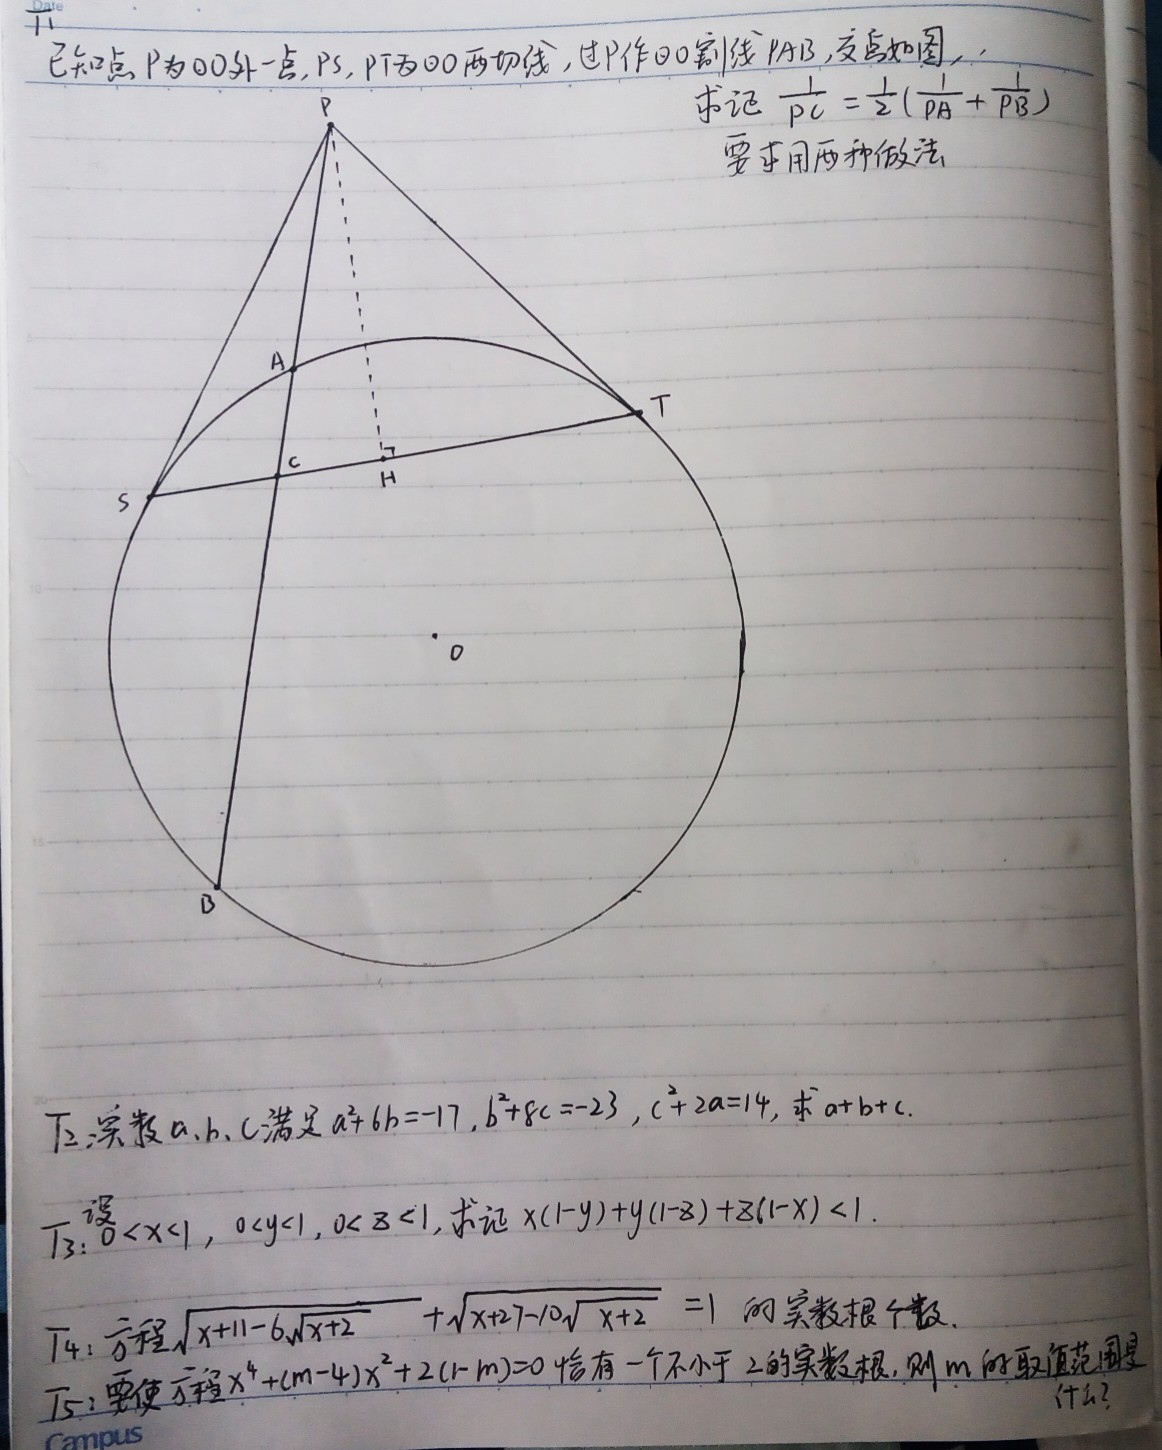 Date
T1
已知点P为⊙O外一点,PS,PT为⊙O两切线,过P作⊙O割线PAB,交点如图,
求证 1/PC = 1/2(1/PA + 1/PB)
要求用两种做法
P
A
T
C
H
S
O
B
T2:实数a、b、c满足a²+6b=-17,b²+8c=-23,c²+2a=14,求a+b+c.
T3:设0<x<1,0<y<1,0<z<1,求证x(1-y)+y(1-z)+z(1-x)<1.
T4:方程√(x+11-6√(x+2))+√(x+27-10√(x+2))=1的实数根个数.
T5:要使方程x⁴+(m-4)x²+2(1-m)=0恰有一个不小于2的实数根,则m的取值范围是
什么?
Campus